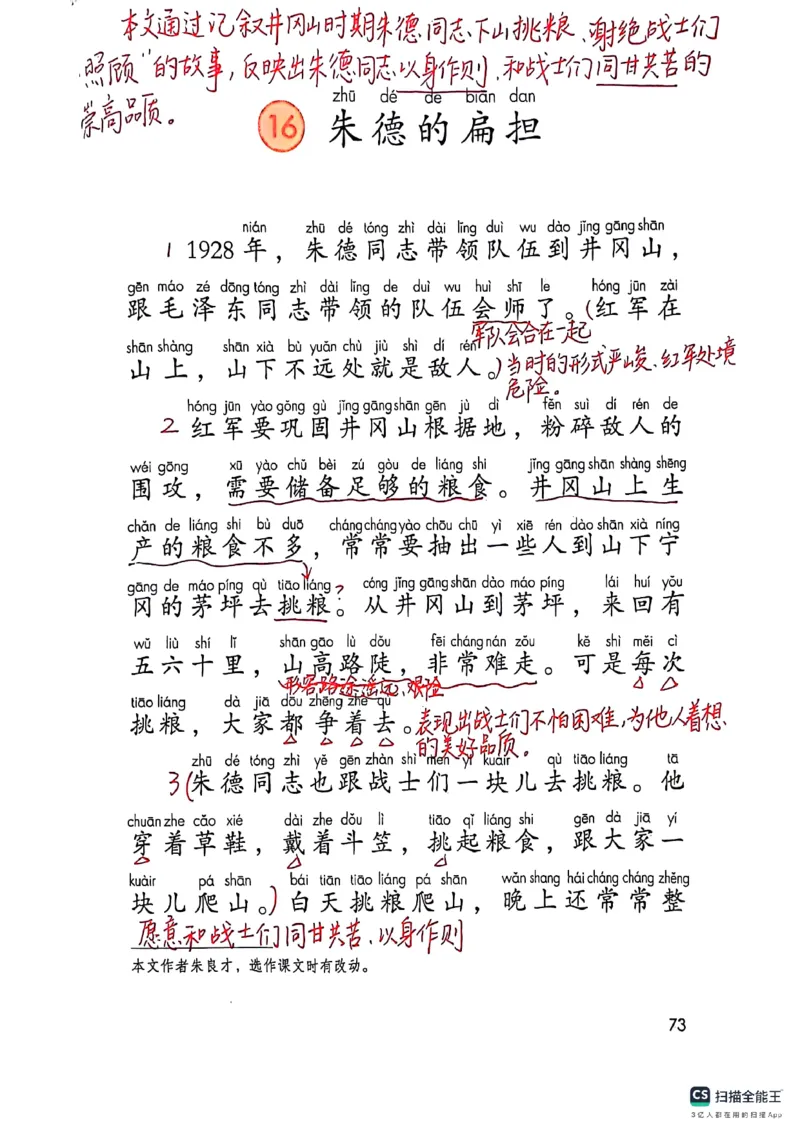 本文通过记叙井冈山时期朱德同志下山挑粮、谢绝战士们
“照顾”的故事，反映出朱德同志以身作则、和战士们同甘共苦的
崇高品质。
zhū dé de biǎn dan
16 朱德的扁担
nián zhū dé tóng zhì dài lǐng duì wu dào jǐng gāng shān
1 1928年，朱德同志带领队伍到井冈山，
gēn máo zé dōng tóng zhì dài lǐng de duì wu huì shī le hóng jūn zài
跟毛泽东同志带领的队伍会师了。(红军在
军队会合在一起
shān shàng shān xià bù yuǎn chù jiù shì dí rén
山上，山下不远处就是敌人。)当时的形式严峻、红军处境
危险。
hóng jūn yào gǒng gù jǐng gāng shān gēn jù dì fěn suì dí rén de
2 红军要巩固井冈山根据地，粉碎敌人的
wéi gōng xū yào chǔ bèi zú gòu de liáng shi jǐng gāng shān shàng shēng
围攻，需要储备足够的粮食。井冈山上生
chǎn de liáng shi bù duō cháng cháng yào chōu chū yì xiē rén dào shān xià níng
产的粮食不多，常常要抽出一些人到山下宁
gāng de máo píng qù tiāo liáng cóng jǐng gāng shān dào máo píng lái huí yǒu
冈的茅坪去挑粮?。从井冈山到茅坪，来回有
wǔ liù shí lǐ shān gāo lù dǒu fēi cháng nán zǒu kě shì měi cì
五六十里，山高路陡，非常难走。可是每次
形容路途遥远、艰险
tiāo liáng dà jiā dōu zhēng zhe qù
挑粮，大家都争着去。表现出战士们不怕困难，为他人着想
的美好品质。
zhū dé tóng zhì yě gēn zhàn shì men yí kuàir qù tiāo liáng tā
3(朱德同志也跟战士们一块儿去挑粮。他
chuān zhe cǎo xié dài zhe dǒu lì tiāo qǐ liáng shi gēn dà jiā yí
穿着草鞋，戴着斗笠，挑起粮食，跟大家一
kuàir pá shān bái tiān tiāo liáng pá shān wǎn shang hái cháng cháng zhěng
块儿爬山。)白天挑粮爬山，晚上还常常整
愿意和战士们同甘共苦、以身作则
本文作者朱良才，选作课文时有改动。
73
CS 扫描全能王
3亿人都在用的扫描App